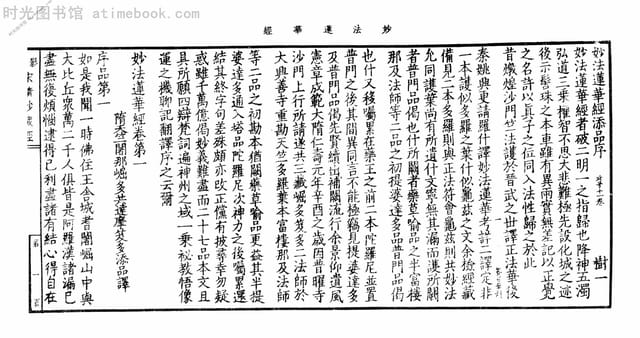 时光图书馆 atimebook.com
妙法蓮華經
妙法蓮華經添品序
樹一
妙法蓮華經者破二明一之指歸也降神五濁
弘道三乘權智不思大悲難極先設化城之迹
後示繫珠之本車雖有異雨實無差記以正覺
之名許以真子之位同入法性歸之於此
昔燉煌沙門竺法護於晉武之世譯正法華後
秦姚興更請羅什譯妙法蓮華考驗二譯定非
一本護似多羅之葉什似龜茲之文余撿經藏
備見二本多羅則與正法符會龜茲則共妙法
允同護葉尚有所遺什文寧無其漏而護所闕
者普門品偈也什所闕者藥草喻品之半富樓
那及法師等二品之初提婆達多品普門品偈
也什又移囑累在藥王之前二本陀羅尼並置
普門之後其間異同言不能極竊見提婆達多
及普門品偈先賢續出補闕流行余景仰遺風
憲章成範大隋仁壽元年辛酉之歲因普曜寺
沙門上行所請遂共三藏崛多笈多二法師於
大興善寺重勘天竺多羅葉本富樓那及法師
等二品之初勘本猶闕藥草喻品更益其半提
婆達多通入塔品陀羅尼次神力之後囑累還
結其終字句差殊頗亦改正儻有披尋幸勿疑
惑雖千萬億偈妙義難盡而二十七品本文且
具所願四辯梵詞遍神州之域一乘祕教悟像
運之機聊記翻譯序之云爾
妙法蓮華經卷第一
隋天竺闍那崛多共達摩笈多添品譯
序品第一
如是我聞一時佛住王舍城耆闍崛山中與
大比丘眾萬二千人俱皆是阿羅漢諸漏已
盡無復煩惱逮得己利盡諸有結心得自在